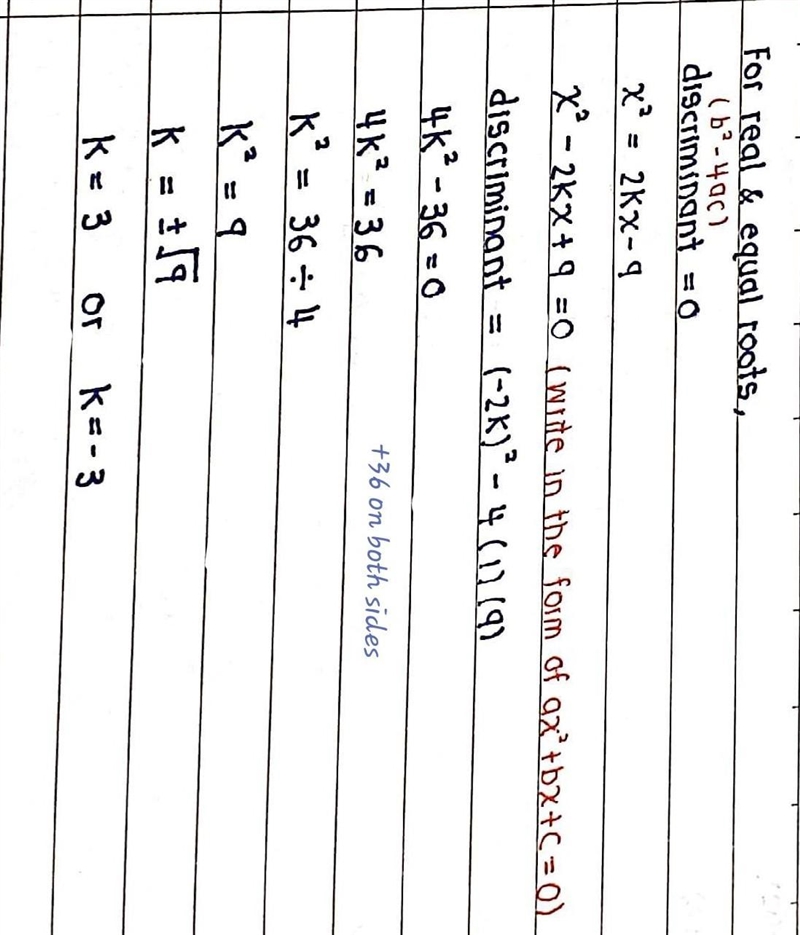 For real & equal roots,
(b² - 4ac)
discriminant = 0
x² = 2kx - 9
x² - 2kx + 9 = 0 (write in the form of ax² + bx + c = 0)
discriminant = (-2k)² - 4 (1) (9)
4k² - 36 = 0
4k² = 36 +36 on both sides
k² = 36 ÷ 4
k² = 9
k = ±√9
k = 3 or k = -3